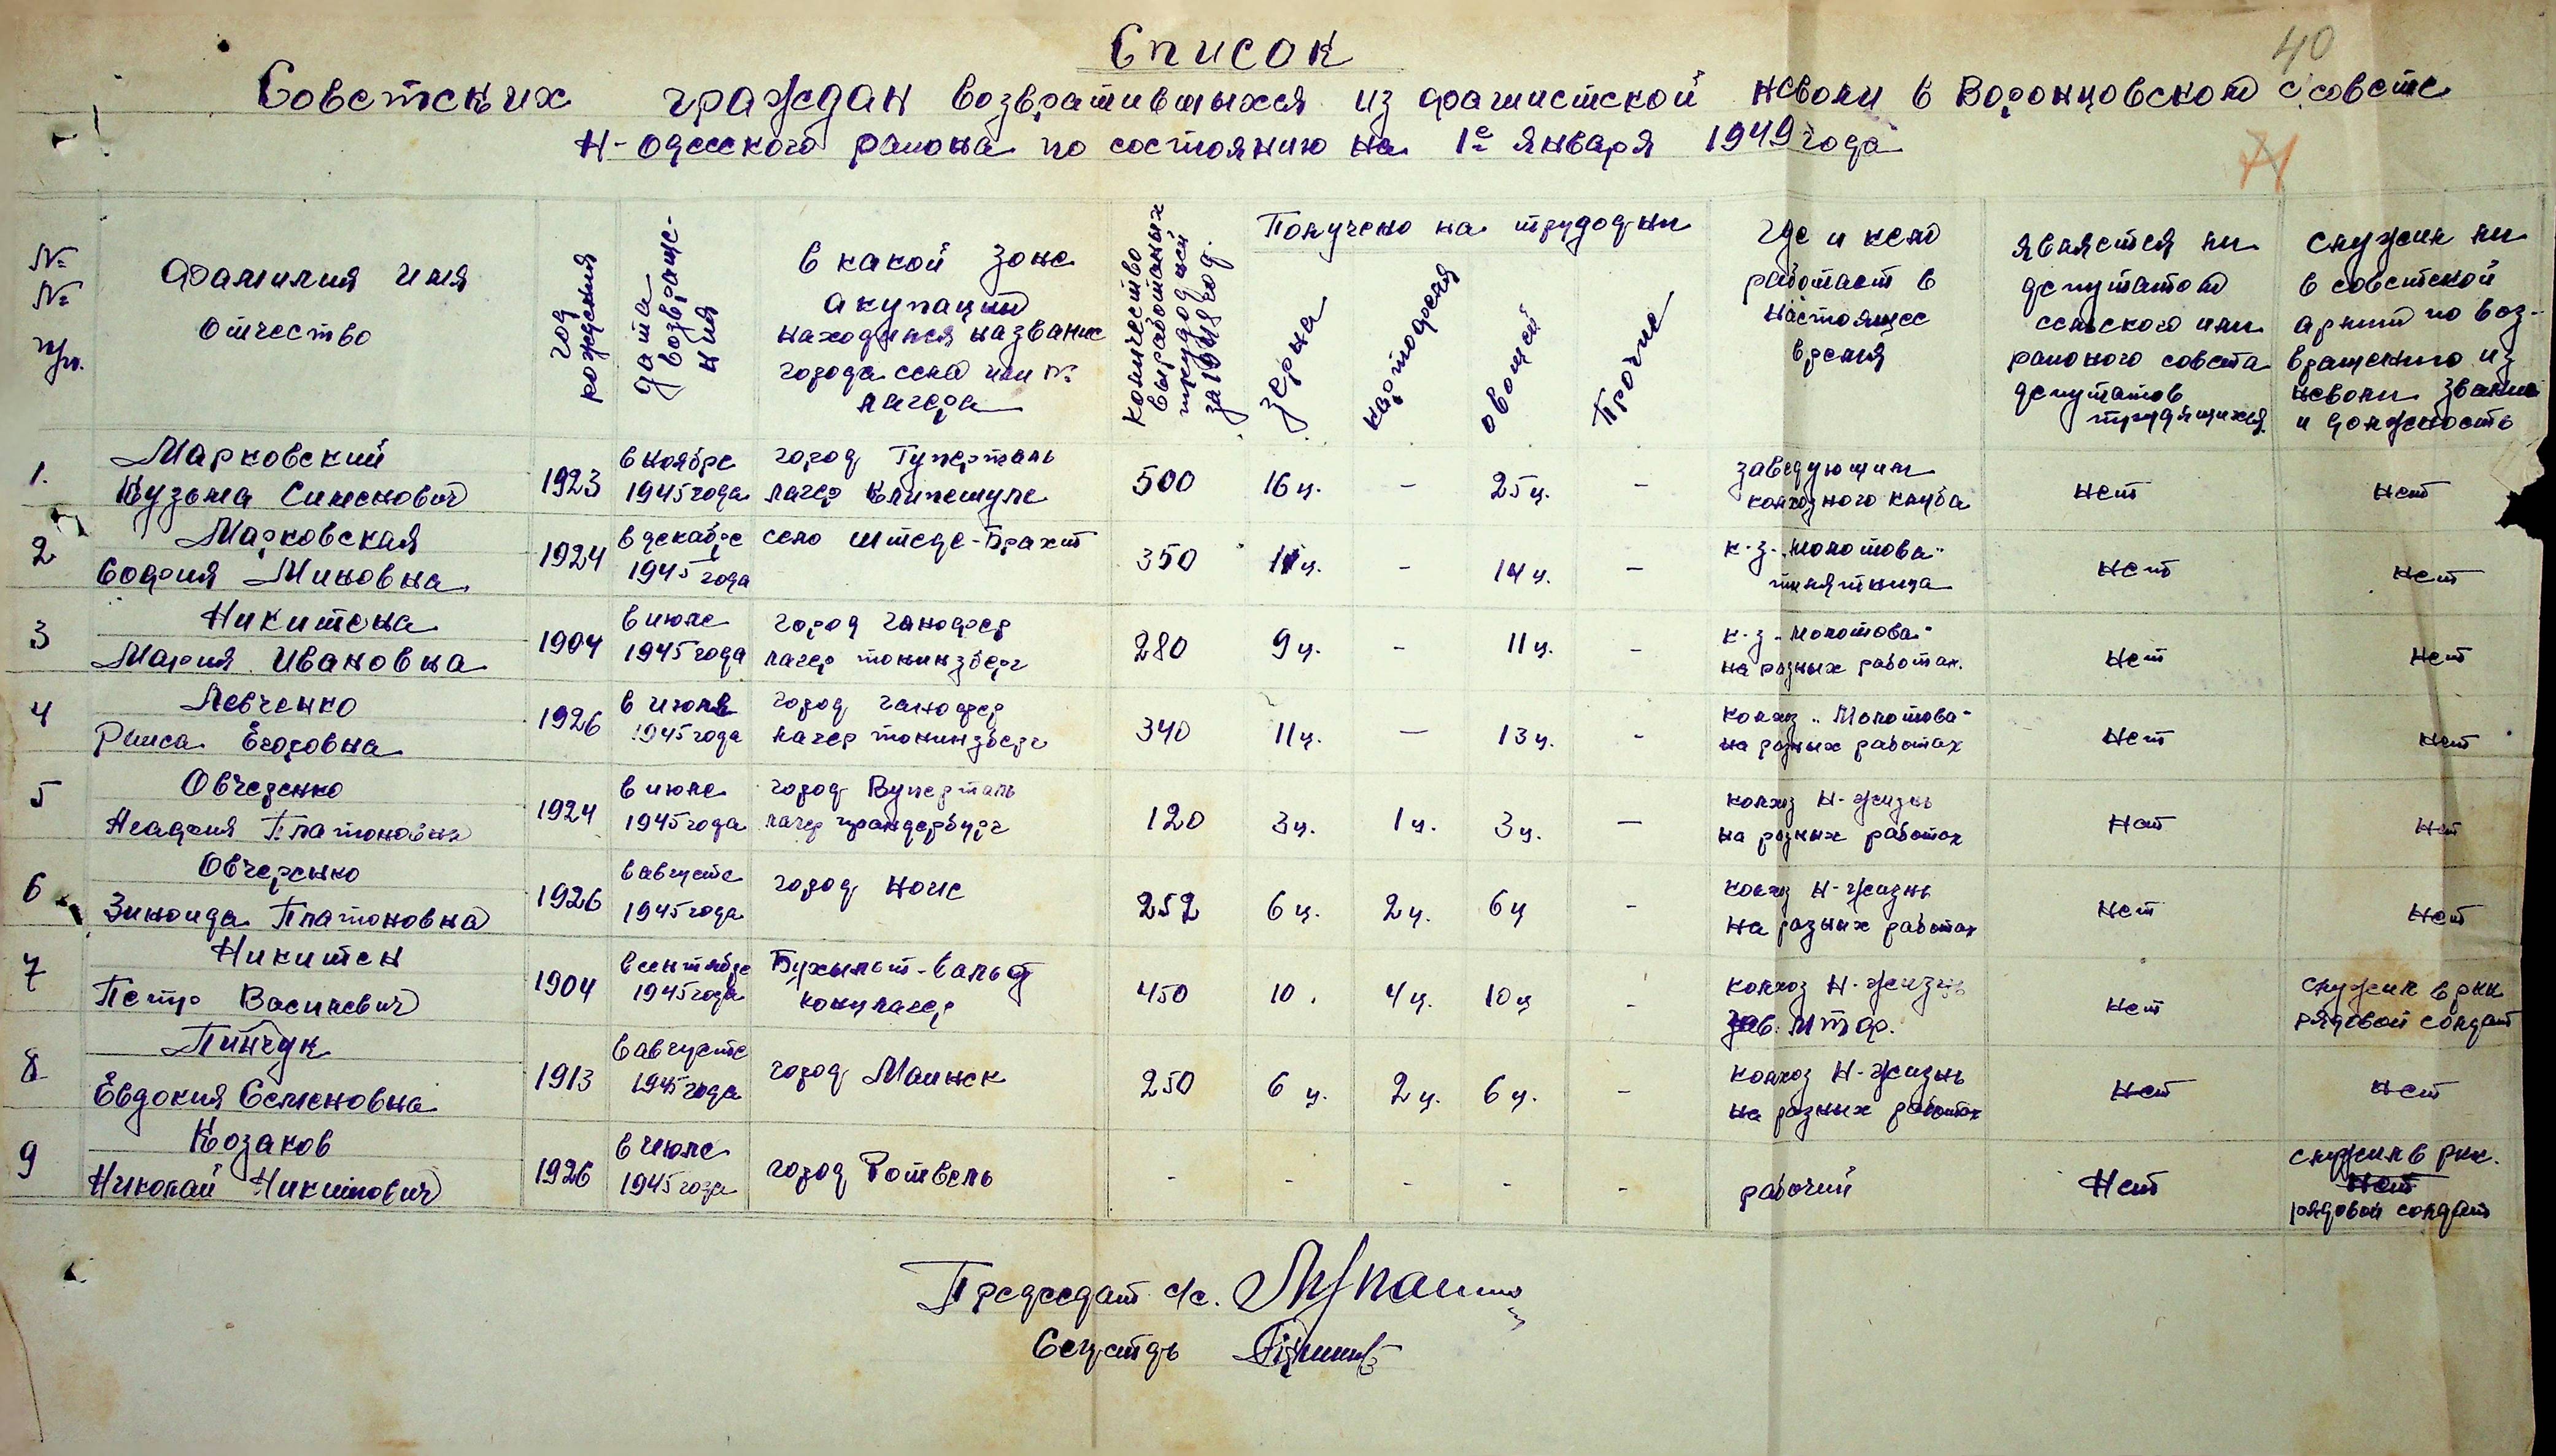 40
Список
Советских граждан возвратившыхся из фашистской неволи в Воронцовском с/совете
Н-Одесского района по состоянию на 1е января 1949 года
71
№ № п/п.
Фамилия имя отчество
год рождения
дата возвраще-ния
в какой зоне акупации находился название города села или № лагеря
количество выработаных трудодней за 1948 год.
Получено на трудодни
зерна
картофеля
овощей
Прочие
Где и кем работает в настоящее время
является ли депутатом сельского или раионого совета депутатов трудящихся
служил ли в советской армии по воз-вращению из неволи звание и должность
1. Марковский Кузьма Сименович 1923 в ноябре 1945 года город Гуперталь лагер Клипешуле 500 16 ц. - 25 ц. - заведующим колхозного клуба нет нет
2 Марковская София Миновна 1924 в декабре 1945 года село Штеде-Брахт 350 11 ц. - 14 ц. - к-з "Молотова" телятница нет нет
3 Никитена Мария Ивановна 1904 в июле 1945 года город Ганофер лагер тонинзберг 280 9 ц. - 11 ц. - к-з "Молотова" на разных работах. нет нет
4 Левченко Раиса Егоровна 1926 в июля 1945 года город Ганофер лагер тонинзберг 340 11 ц. - 13 ц. - колхоз "Молотова" на разных работах нет нет
5 Овчеренко Агафия Платоновна 1924 в июле 1945 года город Вуперталь лагер прандербург 120 3 ц. 1 ц. 3 ц. - колхоз Н-Жизнь на разных работах нет нет
6 Овчеренко Зиноида Платоновна 1926 в августе 1945 года город Ноис 252 6 ц. 2 ц. 6 ц - колхоз Н-Жизнь на разных работах нет нет
7 Никитен Петр Василевич 1904 в сентябре 1945 года Бухыльт-вальд концлагер 450 10 . 4 ц. 10 ц - колхоз Н-Жизнь зав. МТФ. нет служил в ркк рядовой солдат
8 Пинчук Евдокия Семеновна 1913 в августе 1945 года город Маинск 250 6 ц. 2 ц. 6 ц. - колхоз Н-Жизнь на разных работах нет нет
9 Козаков Николай Никитович 1926 в июле 1945 года город Ротвель - - - - - рабочий Нет служил в ркк. нет рядовой солдат
Председат с/с.
Секратдь